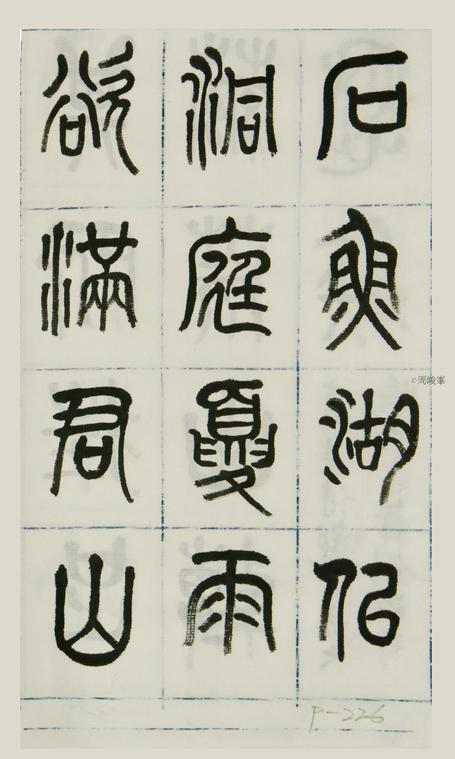 石魚湖似
洞庭夏雨
欲滿君山
©周峻峯
P-226